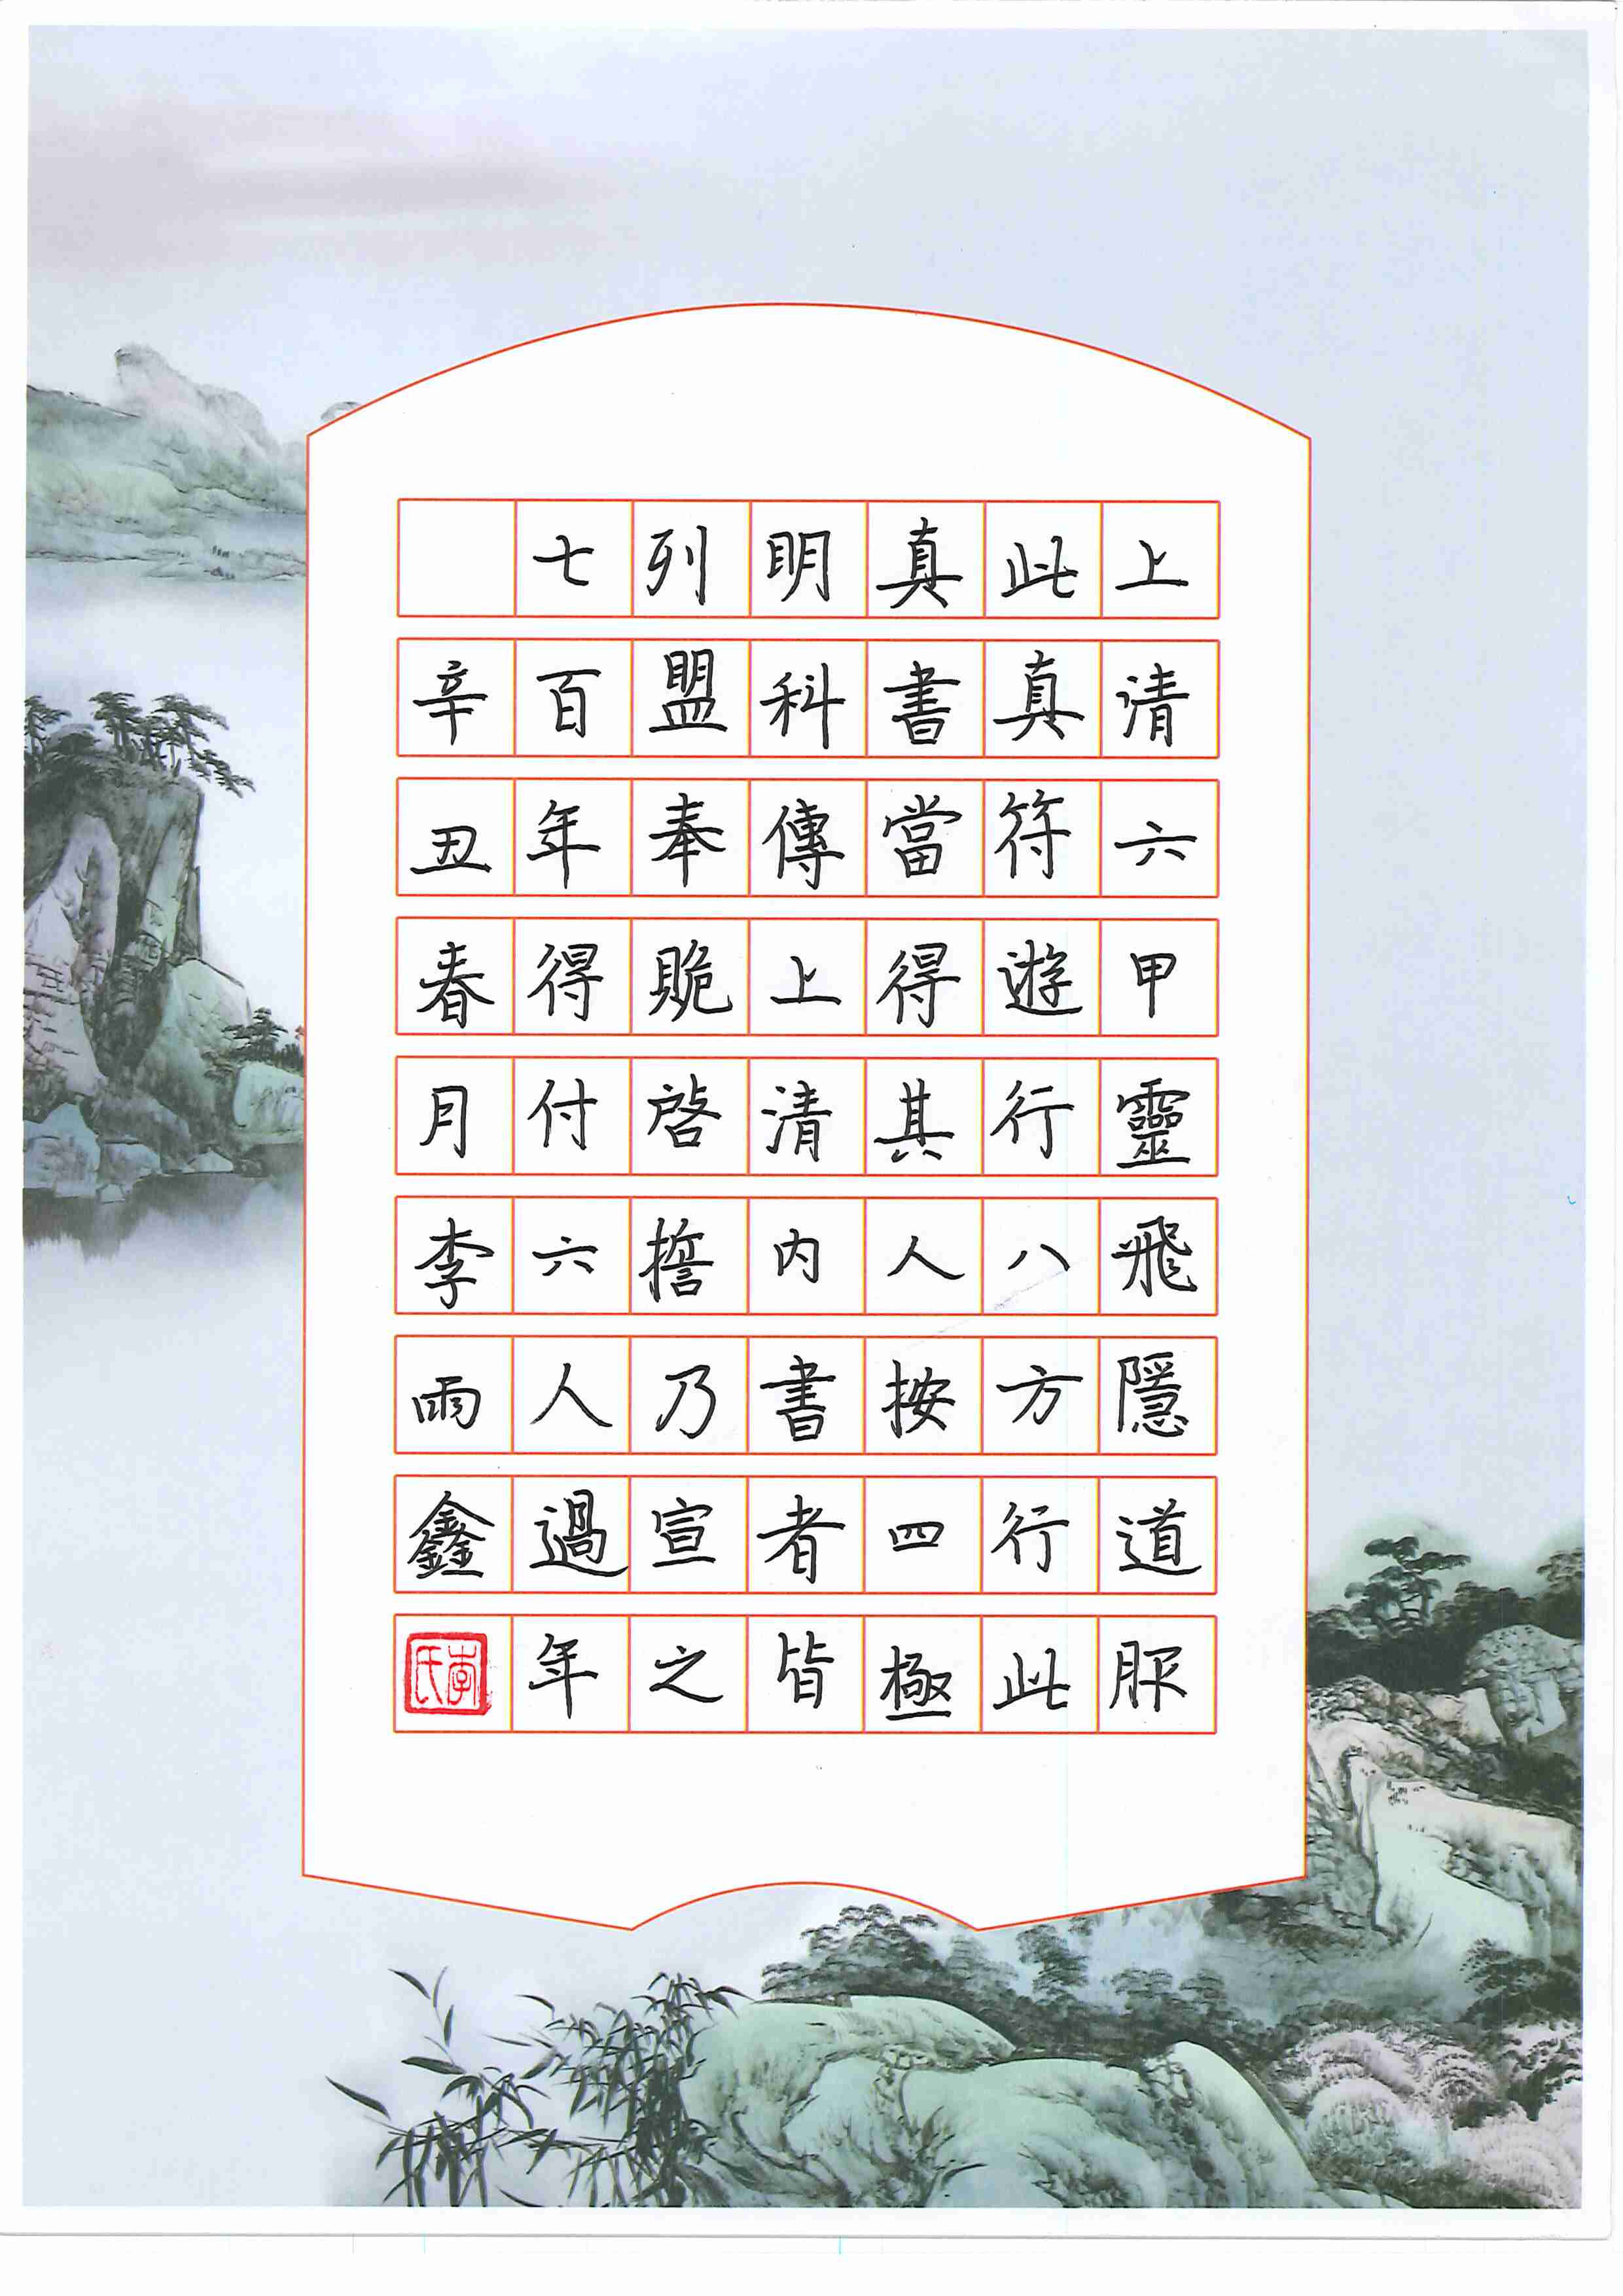 上清六甲靈飛隱道服
此真符遊行八方行此
真書當得其人按四極
明科傳上清內書者皆
列盟奉跪啓擔乃宣之
七百年得付六人過年
辛丑春月李雨鑫
李氏